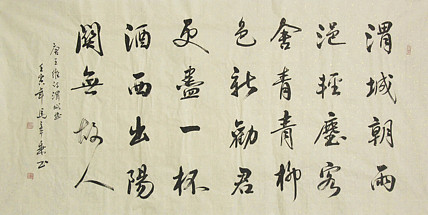 渭城朝雨
浥輕塵客
舍青青柳
色新勸君
更盡一杯
酒西出陽
關無故人
唐王維詩渭城曲
壬寅年